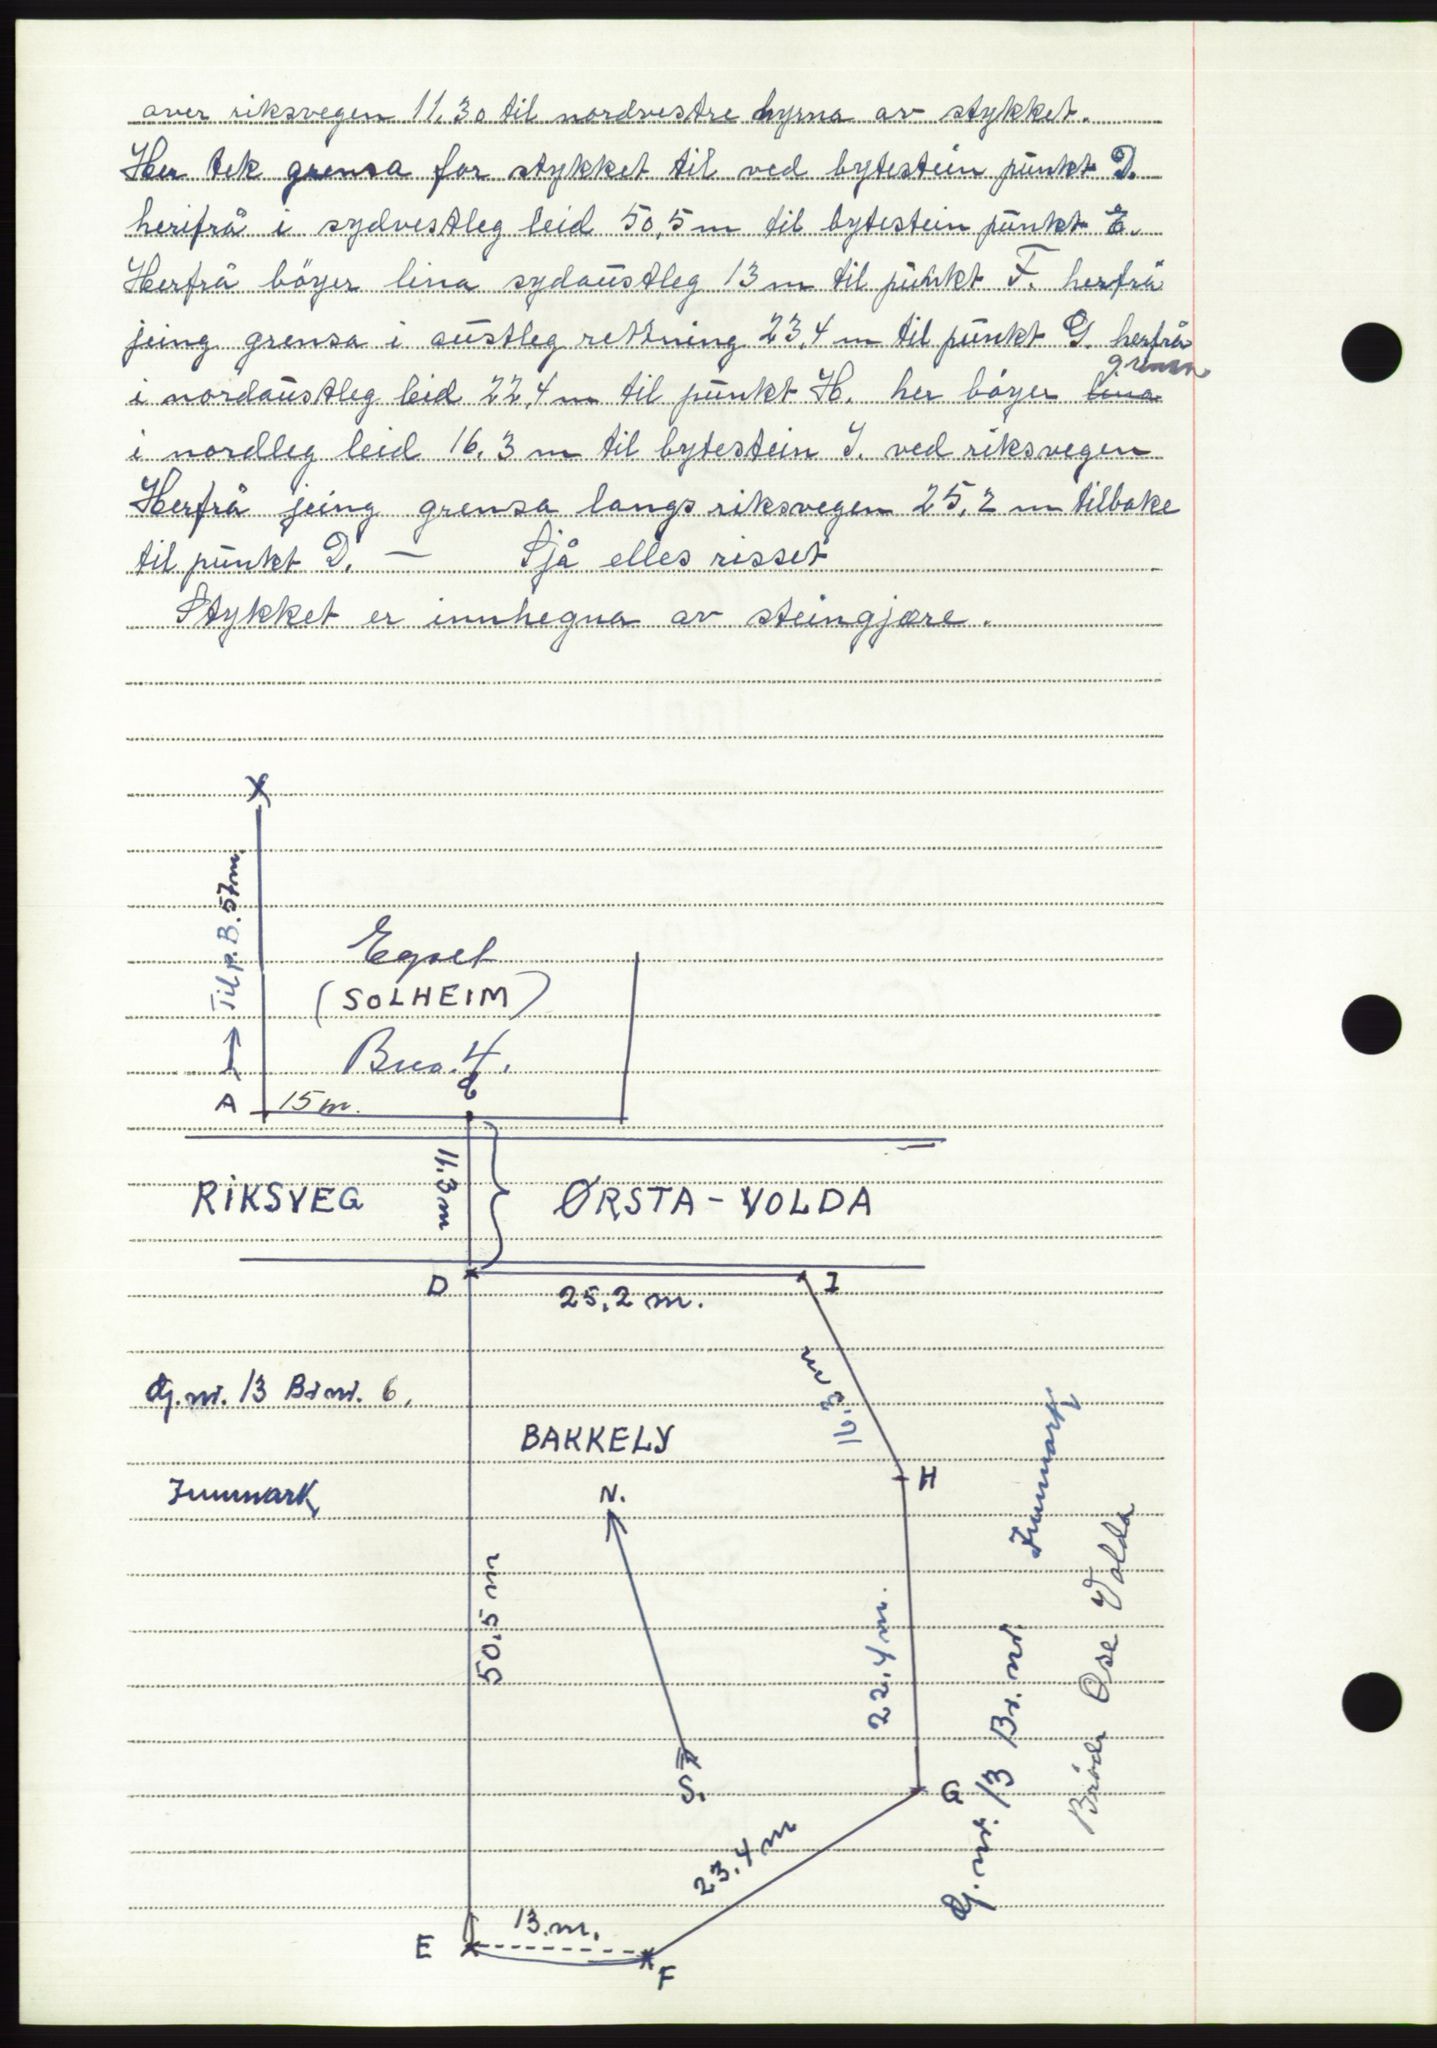 over riksvegen 11,30 til nordvestre hyrna av stykket.
Her tek grensa for stykket til ved bytestein punkt D.
herifrå i sydvestleg leid 50,5 m til bytestein punkt E.
Herfrå böyer lina sydaustleg 13 m til punkt F. herfrå
jeing grensa i austleg rettning 23,4 m til punkt G. herfrå
grensa
i nordaustleg leid 22,4 m til punkt H. her böyer lina
i nordleg leid 16,3 m til bytestein I. ved riksvegen
Herfrå jeing grensa langs riksvegen 25,2 m tilbake
til punkt D. — Sjå elles risset
Stykket er innhegna av steingjære.
X
Til p. B. 57 m.
Egset
(SOLHEIM)
Bno. 4.
A 15 m.
11,3 m
RIKSVEG ØRSTA - VOLDA
D I
25,2 m.
16,3 m
Gj. nr. 13 Br nr. 6.
BAKKELY
H
Innmark
N.
Innmark
50,5 m
22,4 m.
S.
G
Gj. nr. 13 Br. nr.
Brödr Ose Volda
23,4 m
13. m.
E
F